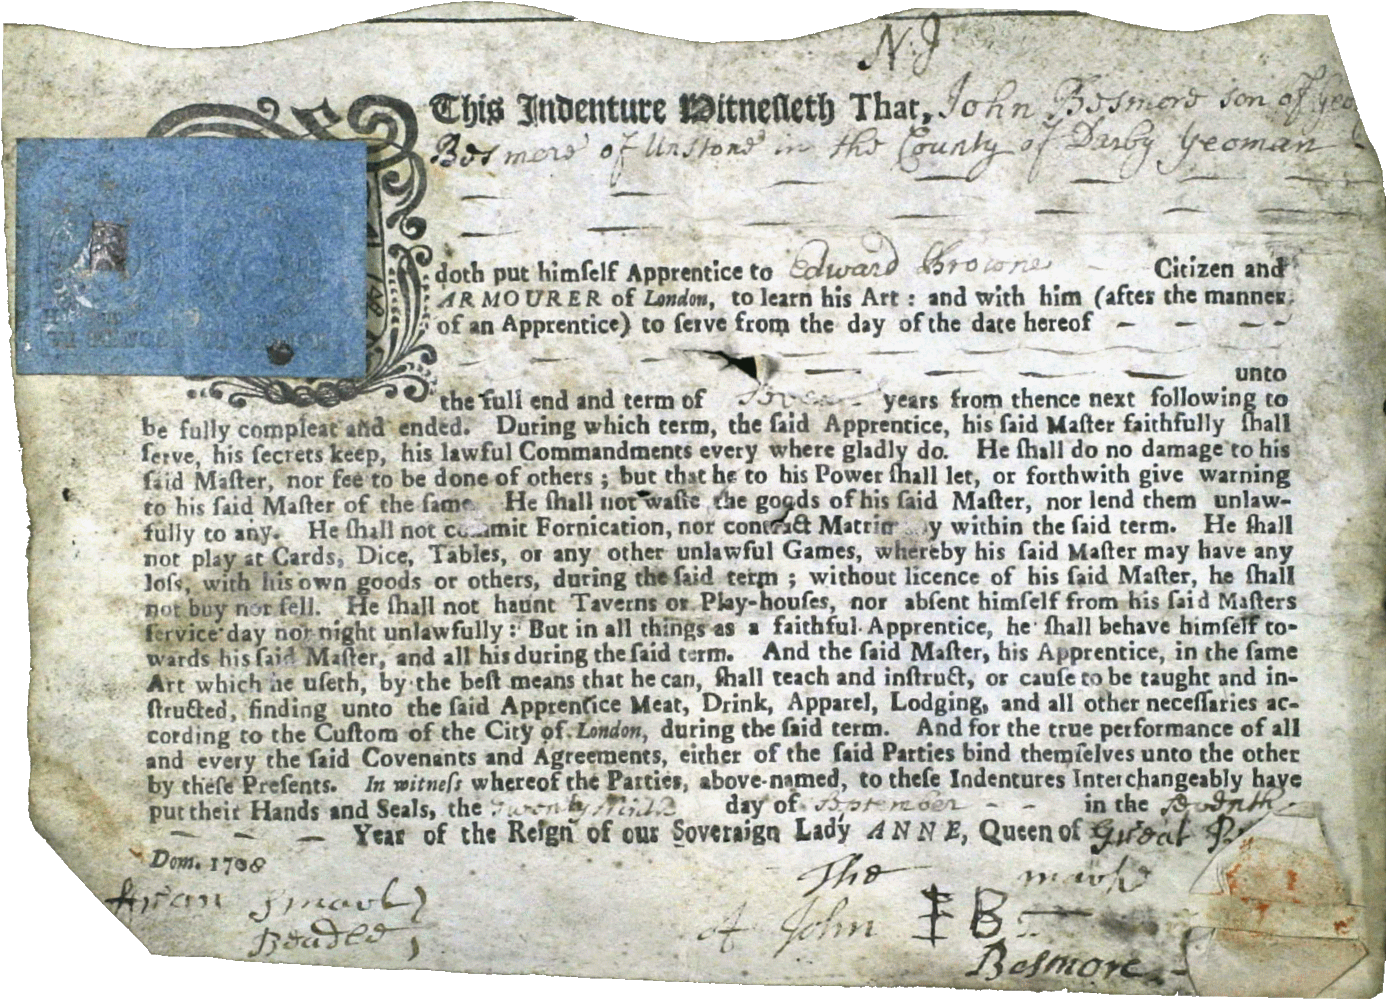 N: J
This Indenture Witnesseth That, John Besmore son of Geo
Besmore of Unstone in the County of Darby Yeoman
doth put himself Apprentice to Edward Browne Citizen and
ARMOURER of London, to learn his Art : and with him (after the manner
of an Apprentice) to serve from the day of the date hereof
unto
the full end and term of Seven years from thence next following to
be fully compleat and ended. During which term, the said Apprentice, his said Master faithfully shall
serve, his secrets keep, his lawful Commandments every where gladly do. He shall do no damage to his
said Master, nor see to be done of others ; but that he to his Power shall let, or forthwith give warning
to his said Master of the same. He shall not waste the goods of his said Master, nor lend them unlaw-
fully to any. He shall not commit Fornication, nor contract Matrimony within the said term. He shall
not play at Cards, Dice, Tables, or any other unlawful Games, whereby his said Master may have any
loss, with his own goods or others, during the said term ; without licence of his said Master, he shall
not buy nor sell. He shall not haunt Taverns or Play-houses, nor absent himself from his said Masters
service day nor night unlawfully : But in all things as a faithful Apprentice, he shall behave himself to-
wards his said Master, and all his during the said term. And the said Master, his Apprentice, in the same
Art which he useth, by the best means that he can, shall teach and instruct, or cause to be taught and in-
structed, finding unto the said Apprentice Meat, Drink, Apparel, Lodging, and all other necessaries ac-
cording to the Custom of the City of London, during the said term. And for the true performance of all
and every the said Covenants and Agreements, either of the said Parties bind themselves unto the other
by these Presents. In witness whereof the Parties, above-named, to these Indentures Interchangeably have
put their Hands and Seals, the Twenty Ninth day of September in the Seventh
Year of the Reign of our Soveraign Lady ANNE, Queen of Great
Dom. 1708
The marke
Smart
of John I B
Beadle
Besmore